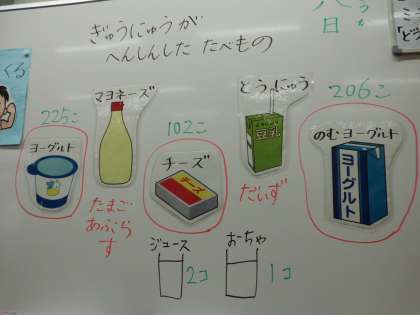 ぎゅうにゅうが
へんしんした たべもの
八
日
くる
225こ
ヨーグルト
マヨネーズ
たまご
あぶら
す
102こ
チーズ
チーズ
とうにゅう
豆乳
だいず
206こ
のむヨーグルト
ヨーグルト
ジュース
2コ
おーちゃ
1コ